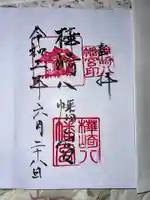 奉拝
樺崎八幡宮
令和二年六月二十八日
樺崎八
幡宮